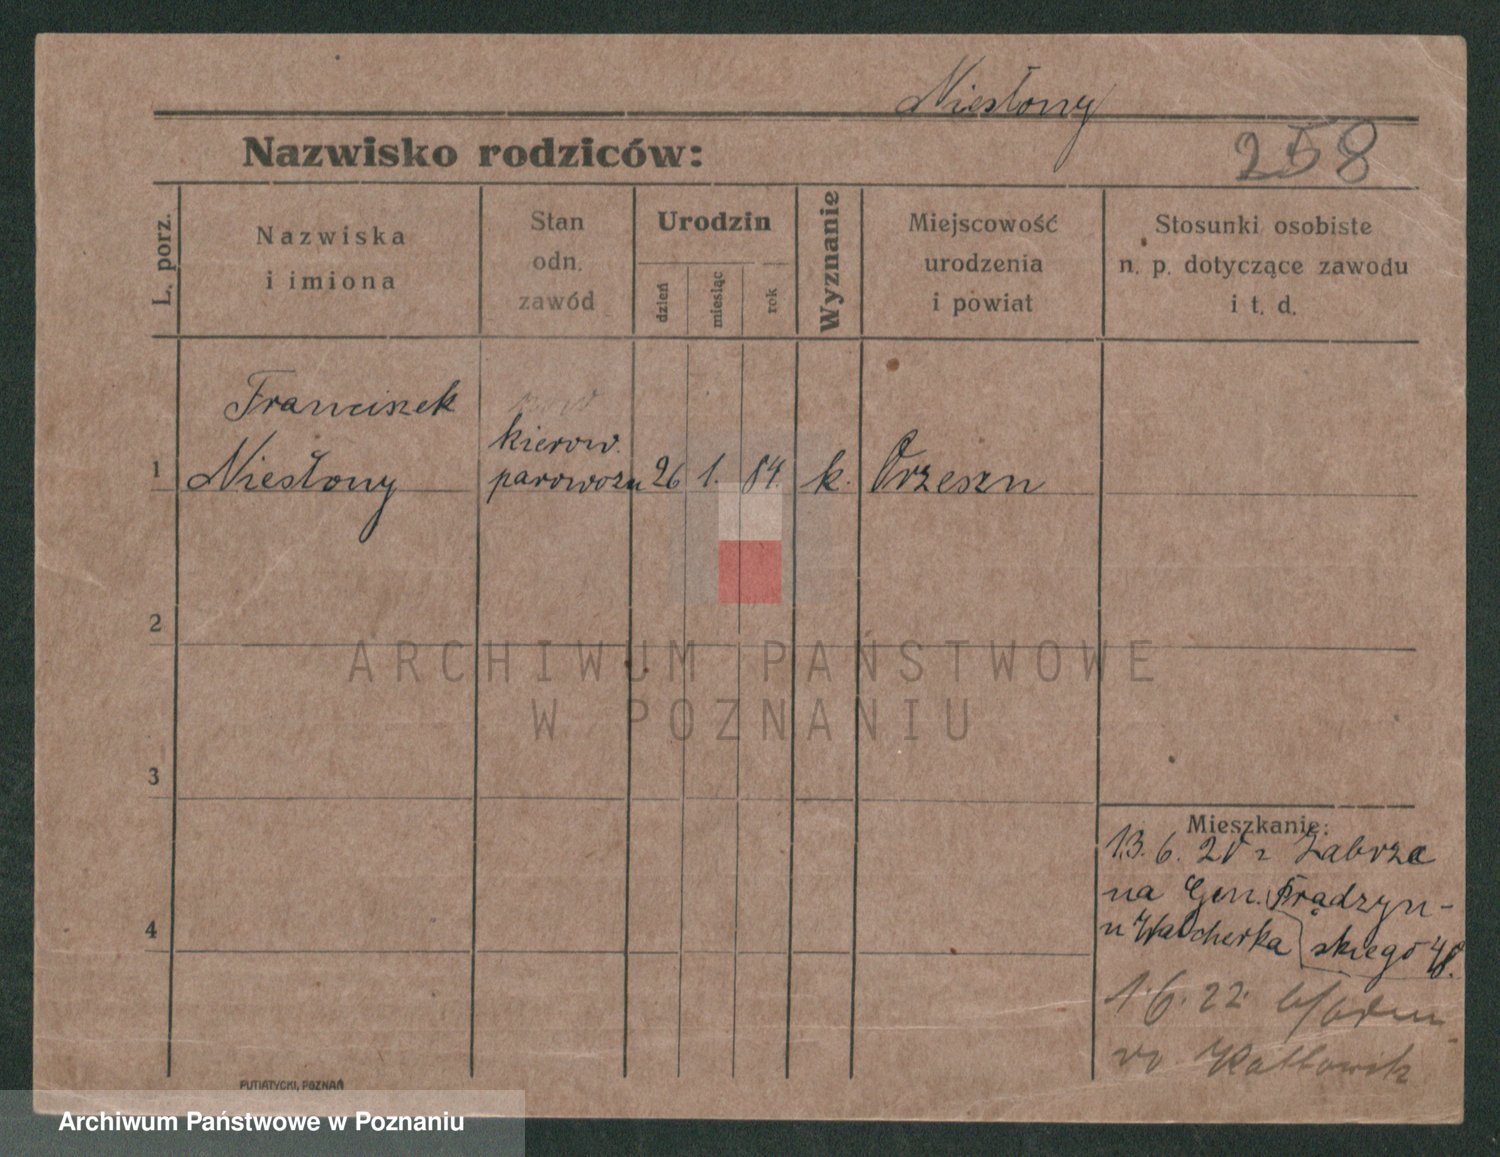 Niesłony
258
Nazwisko rodziców:
L. porz.
Nazwiska
i imiona
Stan
odn.
zawód
Urodzin
dzień
miesiąc
rok
Wyznanie
Miejscowość
urodzenia
i powiat
Stosunki osobiste
n. p. dotyczące zawodu
i t. d.
1
Franciszek
Niesłony
kierow.
parowozu
26
1.
84.
k.
Orzeszn
2
3
4
Mieszkanie:
13. 6. 21 z Zabrza
na Gen. Prądzyn-
skiego 48.
u Wacherka
1.6.22.
Kattowik
PUTIATYCKI, POZNAŃ
ARCHIWUM PAŃSTWOWE
W POZNANIU
Archiwum Państwowe w Poznaniu